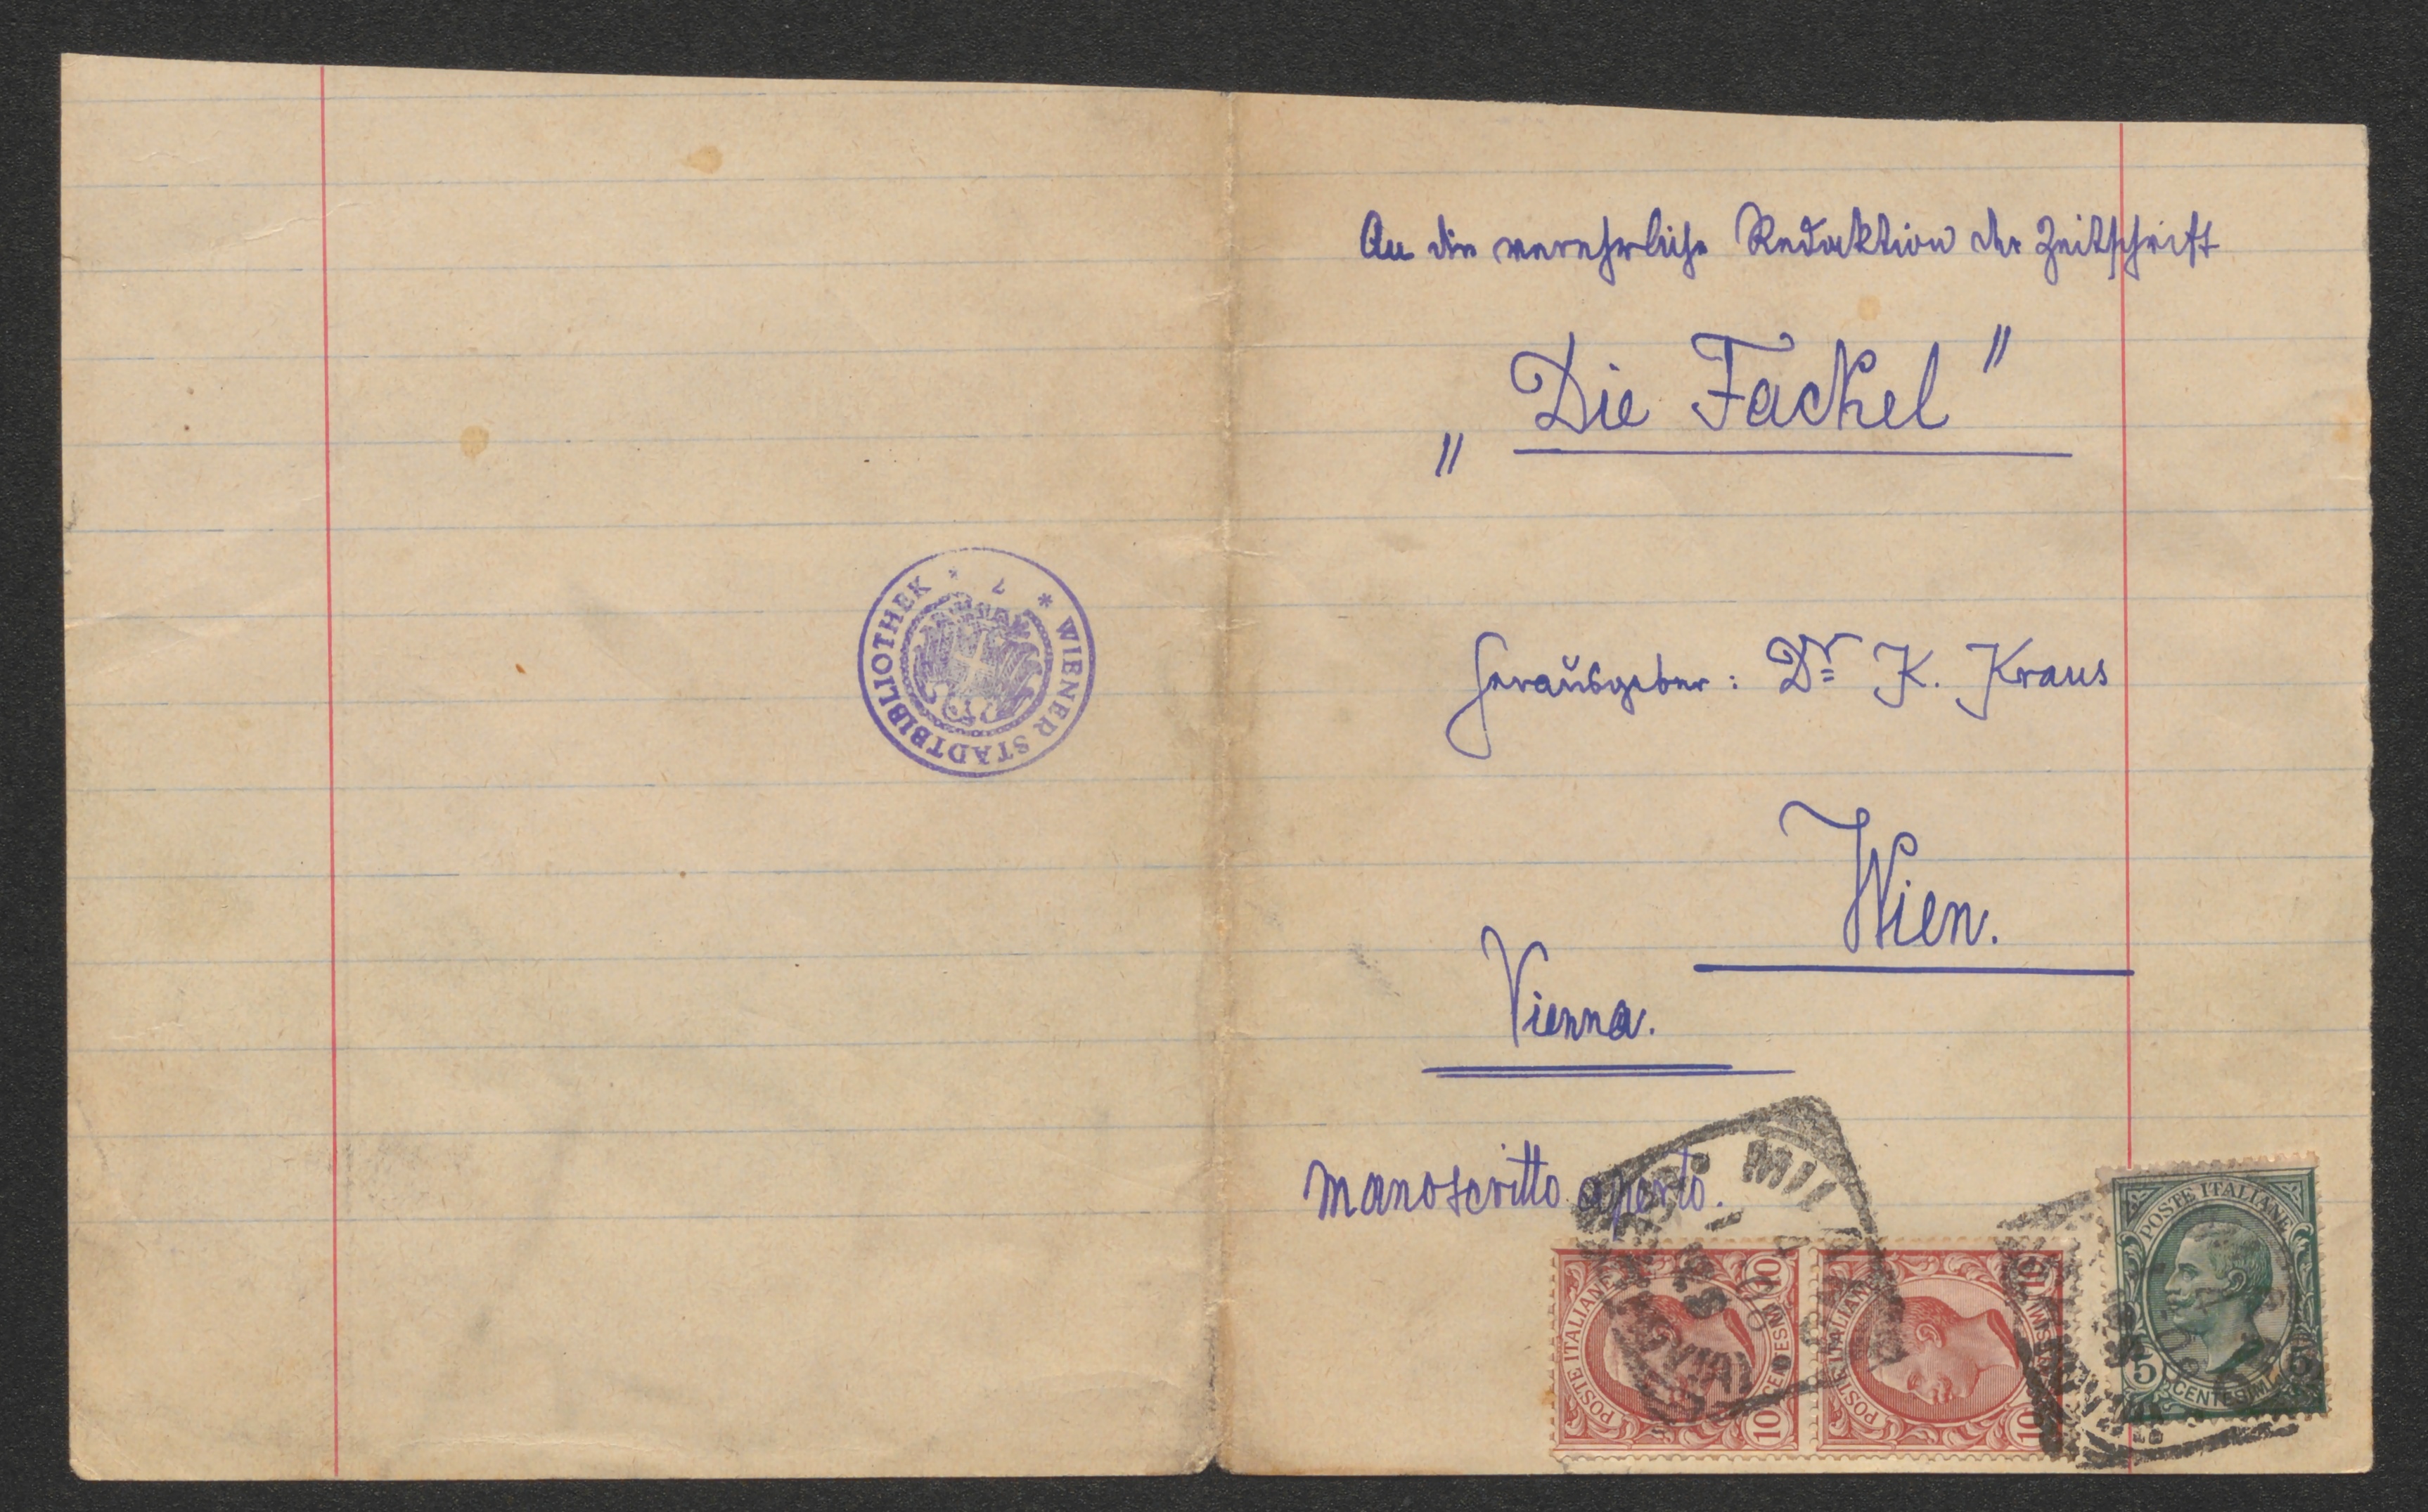 An die verehrliche Redaktion der Zeitschrift
„Die Fackel"
Herausgeber: Dr K. Kraus
Wien.
Vienna.
manoscritto aperto.
* WIENER STADTBIBLIOTHEK *
POSTE ITALIANE
10 CENTESIMI 10
POSTE ITALIANE
10 10
POSTE ITALIANE
5 CENTESIMI 5